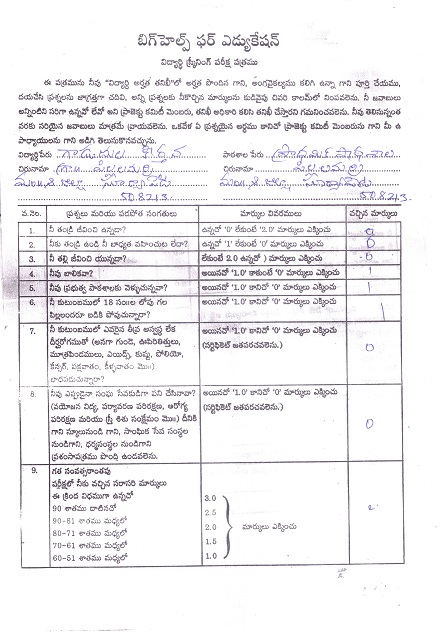 బిగ్‌హెల్ప్ ఫర్ ఎడ్యుకేషన్
విద్యార్థి స్క్రీనింగ్ పరీక్ష పత్రము
ఈ పత్రమును నీవు "విద్యార్థి అర్హత తనిఖీ"లో అర్హత పొందిన గాని, అంగవైకల్యము కలిగి ఉన్నా గాని పూర్తి చేయుము,
దయచేసి ప్రశ్నలను జాగ్రత్తగా చదివి, అన్ని ప్రశ్నలకు నీకొచ్చిన మార్కులను కుడివైపు చివరి కాలమ్‌లో నింపవలెను. నీ జవాబులు
అన్నింటిని సరిగా ఉన్నవో లేవో అని ప్రాజెక్టు కమిటీ మెంబరు, తనిఖీ అధికారి కలిసి తనిఖీ చేస్తారని గమనించవలెను. నీవు తెలుసున్నంత
వరకు సరియైన జవాబులు మాత్రమే వ్రాయవలెను. ఒకవేళ ఏ ప్రశ్నయైన అర్థము కానిచో ప్రాజెక్టు కమిటీ మెంబరును గాని మీ ఉ
పాధ్యాయులను గాని అడిగి తెలుసుకొనవచ్చును.
విద్యార్థిపేరు కీర్తన పాఠశాల పేరు ప్రాథమిక పాఠశాల
చిరునామా గ్రా పిల్లలమర్రి చిరునామా గ్రా పిల్లలమర్రి
సూర్యాపేట సూర్యాపేట
508213. 508213.
వ.నెం. ప్రశ్నలు మరియు పరపోత సంగతులు మార్కుల వివరములు వచ్చిన మార్కులు
1. నీ తండ్రి జీవించి ఉన్నడా? ఉన్నచో '0' లేకుంటే '2.0' మార్కులు ఎక్కించు 0
2. నీకు తండ్రి ఉండి నీ బాధ్యత వహించుట లేదా? ఉన్నచో '1' లేకుంటే '0' మార్కులు ఎక్కించు 0
3. నీ తల్లి జీవించి యున్నదా? లేకుంటే 2.0 ఉన్నచో ) మార్కులు ఎక్కించు 0
4. నీవు బాలికవా? అయినచో '1.0' కాకుంటే '0' మార్కులు ఎక్కించు 1
5. నీవు ప్రభుత్వ పాఠశాలకు వెళ్ళుచున్నావా? అయినచో '1.0' కానిచో '0' మార్కులు ఎక్కించు 1
6. నీ కుటుంబములో 18 సం॥ల లోపు గల అయినచో '1.0' కానిచో '0' మార్కులు ఎక్కించు 1
పిల్లలందరూ బడికి పోవుచున్నారా?
7. నీ కుటుంబములో ఎవరైన తీవ్ర అస్వస్థ లేక అయినచో '1.0' కానిచో '0' మార్కులు ఎక్కించు
దీర్ఘరోగముతో (అనగా గుండె, ఊపిరితిత్తులు, (సర్టిఫికెట్ జతపరచవలెను.) 0
మూత్రపిండములు, ఎయిడ్స్, కుష్ఠు, పోలియో,
కేన్సర్, పక్షవాతం, కీళ్ళవాతం మొ॥)
బాధపడుచున్నారా?
8. నీవు ఎప్పుడైనా సంఘ సేవకుడిగా పని చేసినావా? అయినచో '1.0' కానిచో '0' మార్కులు ఎక్కించు
(వయోజన విద్య, పర్యావరణ పరిరక్షణ, ఆరోగ్య (సర్టిఫికెట్ జతపరచవలెను.)
పరిరక్షణ మరియు స్త్రీ శిశు సంక్షేమం మొ॥) దీనికి 0
గాని స్కూలునుండి గాని, సాంఘిక సేవ సంస్థల
నుండిగాని, ధర్మసంస్థల నుండిగాని
ప్రశంసాపత్రము పొంది ఉండవలెను.
9. గత సంవత్సరాంతపు
పరీక్షలో నీకు వచ్చిన సరాసరి మార్కులు
ఈ క్రింద విధముగా ఉన్నచో 3.0
90 శాతము దాటినచో 2.5
90-81 శాతము మధ్యలో 2.0 మార్కులు ఎక్కించు 2
80-71 శాతము మధ్యలో 1.5
70-61 శాతము మధ్యలో 1.0
60-51 శాతము మధ్యలో
5